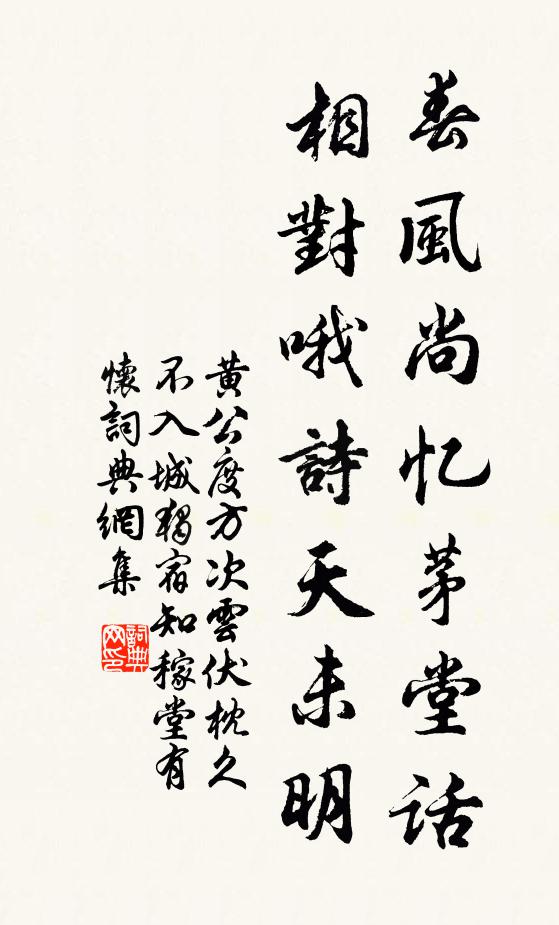 春風尚忆茅堂话
相對哦詩天未明
黄公度方次雲伏枕久
不入城獨宿知稼堂有
懷詞典網集
詞典网印